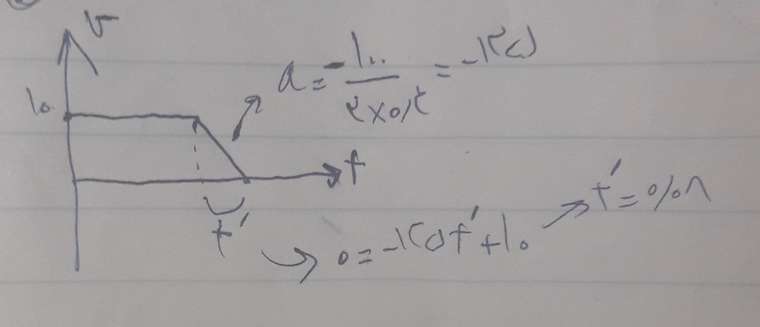 v
a = -۱۰۰ / ۲×۰/۴ = -۱۲۵
۱۰
t
t'
۰ = -۱۲۵t' + ۱۰
t' = ۰/۰۸